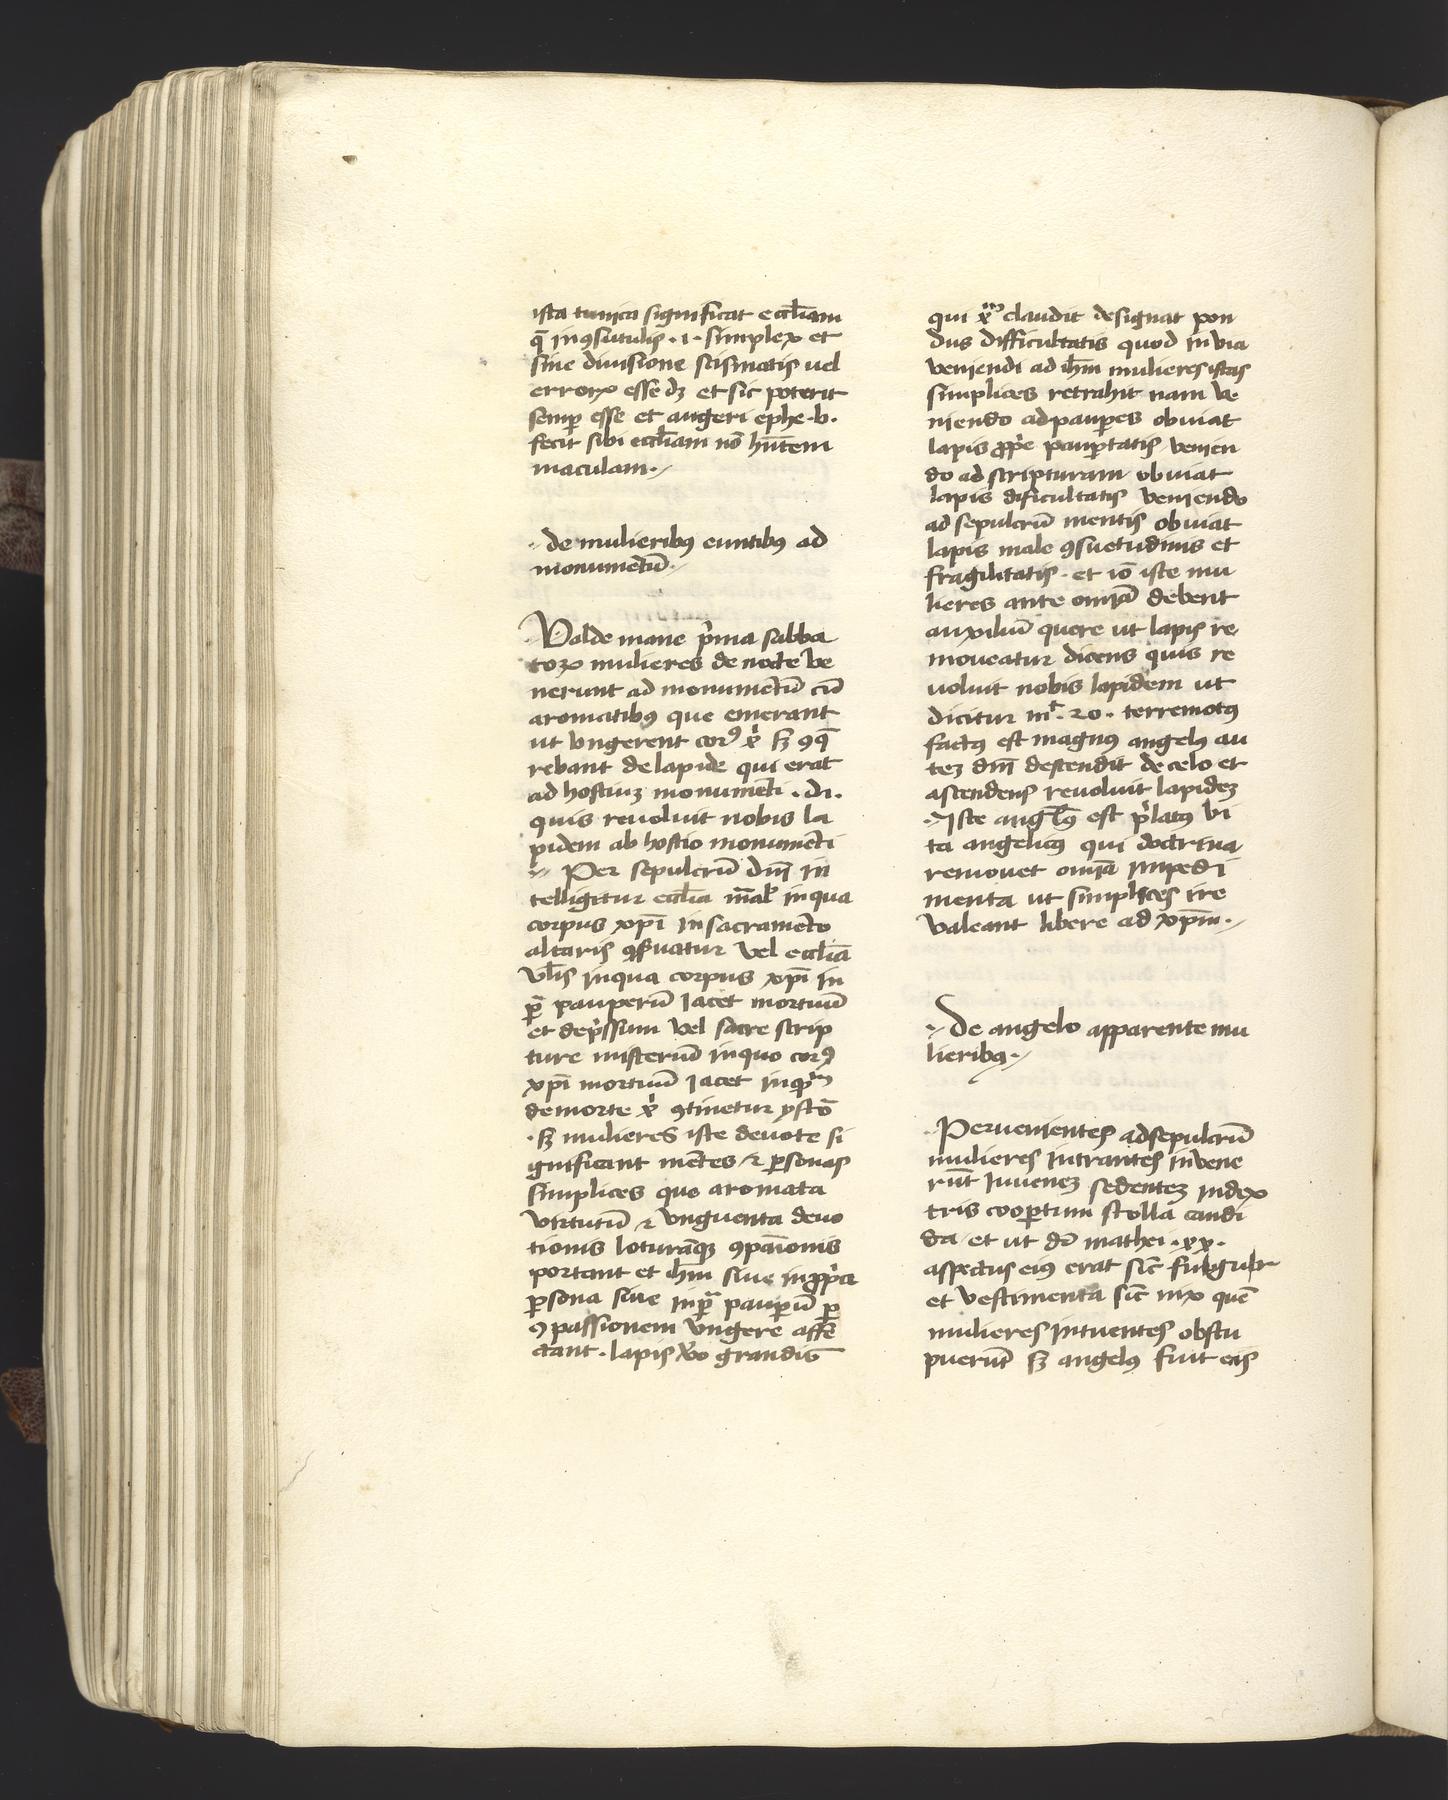 ista tunica significat eccl̄iam
q̄ inꝯsutulis · i · simplex et
sine diuisione scismatis uel
erroꝝ esse dꝫ et sic poterit
semꝑ esse et augeri ephe · v ·
fecit sibi eccl̄iam nō hn̄tem
maculam ·
de mulieribꝰ euntibꝰ ad
monumētū ·
Valde mane pͥma sabba
toꝝ mulieres de nocte ve
nerunt ad monumētū cū
aromatibꝰ que emerant
ut vngerent corꝰ xͥ sꝫ ꝯq̄
rebant de lapide qui erat
ad hostiuꝫ monumēti · di ·
quis reuoluit nobis la
pidem ab hostio monumēti
Per sepulcrū dn̄i in
telligitur eccl̄ia māl' in qua
corpus xp̄i in sacramēto
altaris ꝯẜuatur vel eccl̄ia
vl̄is in qua corpus xp̄i in
ꝑᵃ pauperū iacet mortuū
et dep̄ssum vel sacre scrip
ture misteriū in quo corꝰ
xp̄i mortuū iacet inqͣꝫ
de morte xͥ ꝯtinetur ystō
· sꝫ mulieres iste deuote si
gnificant mētes ⁊ ꝑsonas
simplices que aromata
virtutū ⁊ vnguenta deuo
tionis loturāqꝫ ꝯpāionis
portant et ih̄m siue in ꝓpͥa
ꝑsona siue in ꝑᵃ pauꝑū ꝑ
ꝯpassionem vngere affe
ctant · lapis v̊o grandis
qui xͫ claudit designat pon
dus difficultatis quod in via
veniendi ad ih̄m mulieres istas
simplices retrahit nam ve
niendo ad pauꝑes obuiat
lapis ꝓpͥe pauꝑtatis venien
do ad scripturam obuiat
lapis dificultatis veniendo
ad sepulcrū mentis obuiat
lapis male ꝯsuetudinis et
fragilitatis · et iō iste mu
lieres ante om̄ia debent
auxiliū quere ut lapis re
moueatur dicens quis re
uoluit nobis lapidem ut
dicitur mͬ · 20 · terremotꝰ
factꝰ est magnꝰ angelꝰ au
teꝫ dn̄i descendit de celo et
ascendens reuoluit lapideꝫ
Iste angl̄ꝰ est pͥlatꝰ vi
ta angelicꝰ qui doctrina
remouet om̄ia impedi
menta ut simplices ire
valeant libere ad xp̄m ·
De angelo apparente mu
lieribꝰ ·
Peruenientes ad sepulcrū
mulieres intrantes inuene
rūt iuueneꝫ sedenteꝫ in dex
tris cooꝑtum stolla candi
da et ut dr̄ mathei · xx ·
aspectus eiꝰ erat sic̄ fulgur
et vestimenta sic̄ nix quē
mulieres intuentes obstu
puerūt sꝫ angelꝰ fuit eis